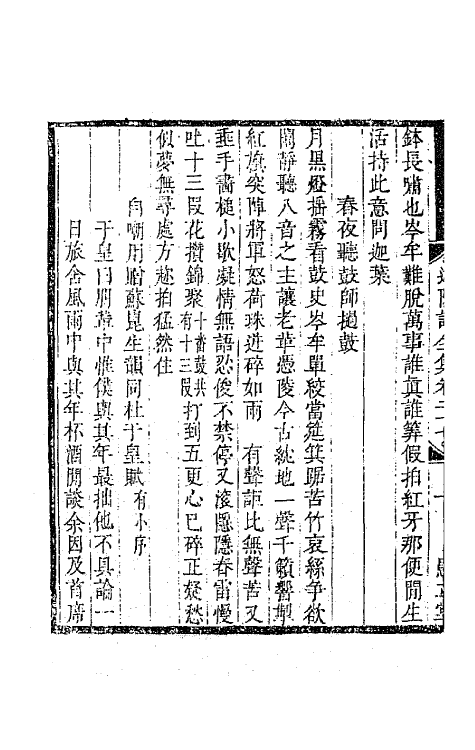 鉢長嘯也岑牟難脫萬事誰眞誰算假拍紅牙那便閒生
活持此意問迦葉
春夜聽鼓師撾鼓
月黑燈搖霧看鼓史岑牟單絞當筵箕踞苦竹哀絲爭欲
鬧靜聽八音之主讓老革憑陵今古統地一聲千籟響掣
紅旗突陣將軍怒荷珠迸碎如雨　有聲詎比無聲苦又
垂手畵槌小歇凝情無語恐俊不禁停又滚隱隱春雷慢
吐十三叚花攢錦聚十番鼓共有十三叚打到五更心已碎正凝愁
似夢無尋處方趂拍猛然住
自嘲用贈蘇崑生韻同杜于皇賦有小序
于皇曰朋輩中惟僕與其年最拙他不具論一
日旅舍風雨中與其年杯酒閒談余因及首席
迦陵詞全集卷二十七